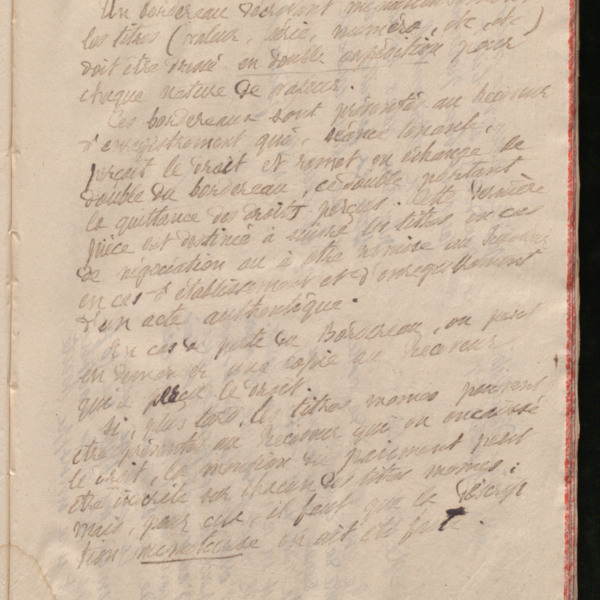 Un bordereau décrivant
les titres (valeur, série, numéro, etc etc)
doit être dressé en double expédition pour
chaque nature de valeur.
Ces bordereaux sont présentés au Receveur
d'enregistrement qui, séance tenante,
perçoit le droit et remet en échange le
double du bordereau, ce double portant
la quittance des droits perçus. Cette dernière
pièce est destinée à suivre les titres en cas
de négociation ou à être remise au Receveur
en cas d'établissement et d'enregistrement
d'un acte authentique.
En cas de perte du Bordereau, on peut
en demander une copie au Receveur
qui a perçu le droit.
Si, plus tard, les titres mêmes peuvent
être présentés au Receveur qui en encaissé
le droit, la mention du paiement peut
être inscrite sur chacun des titres mêmes;
mais, pour cela, il faut que la descrip
tion minutieuse en ait été faite.